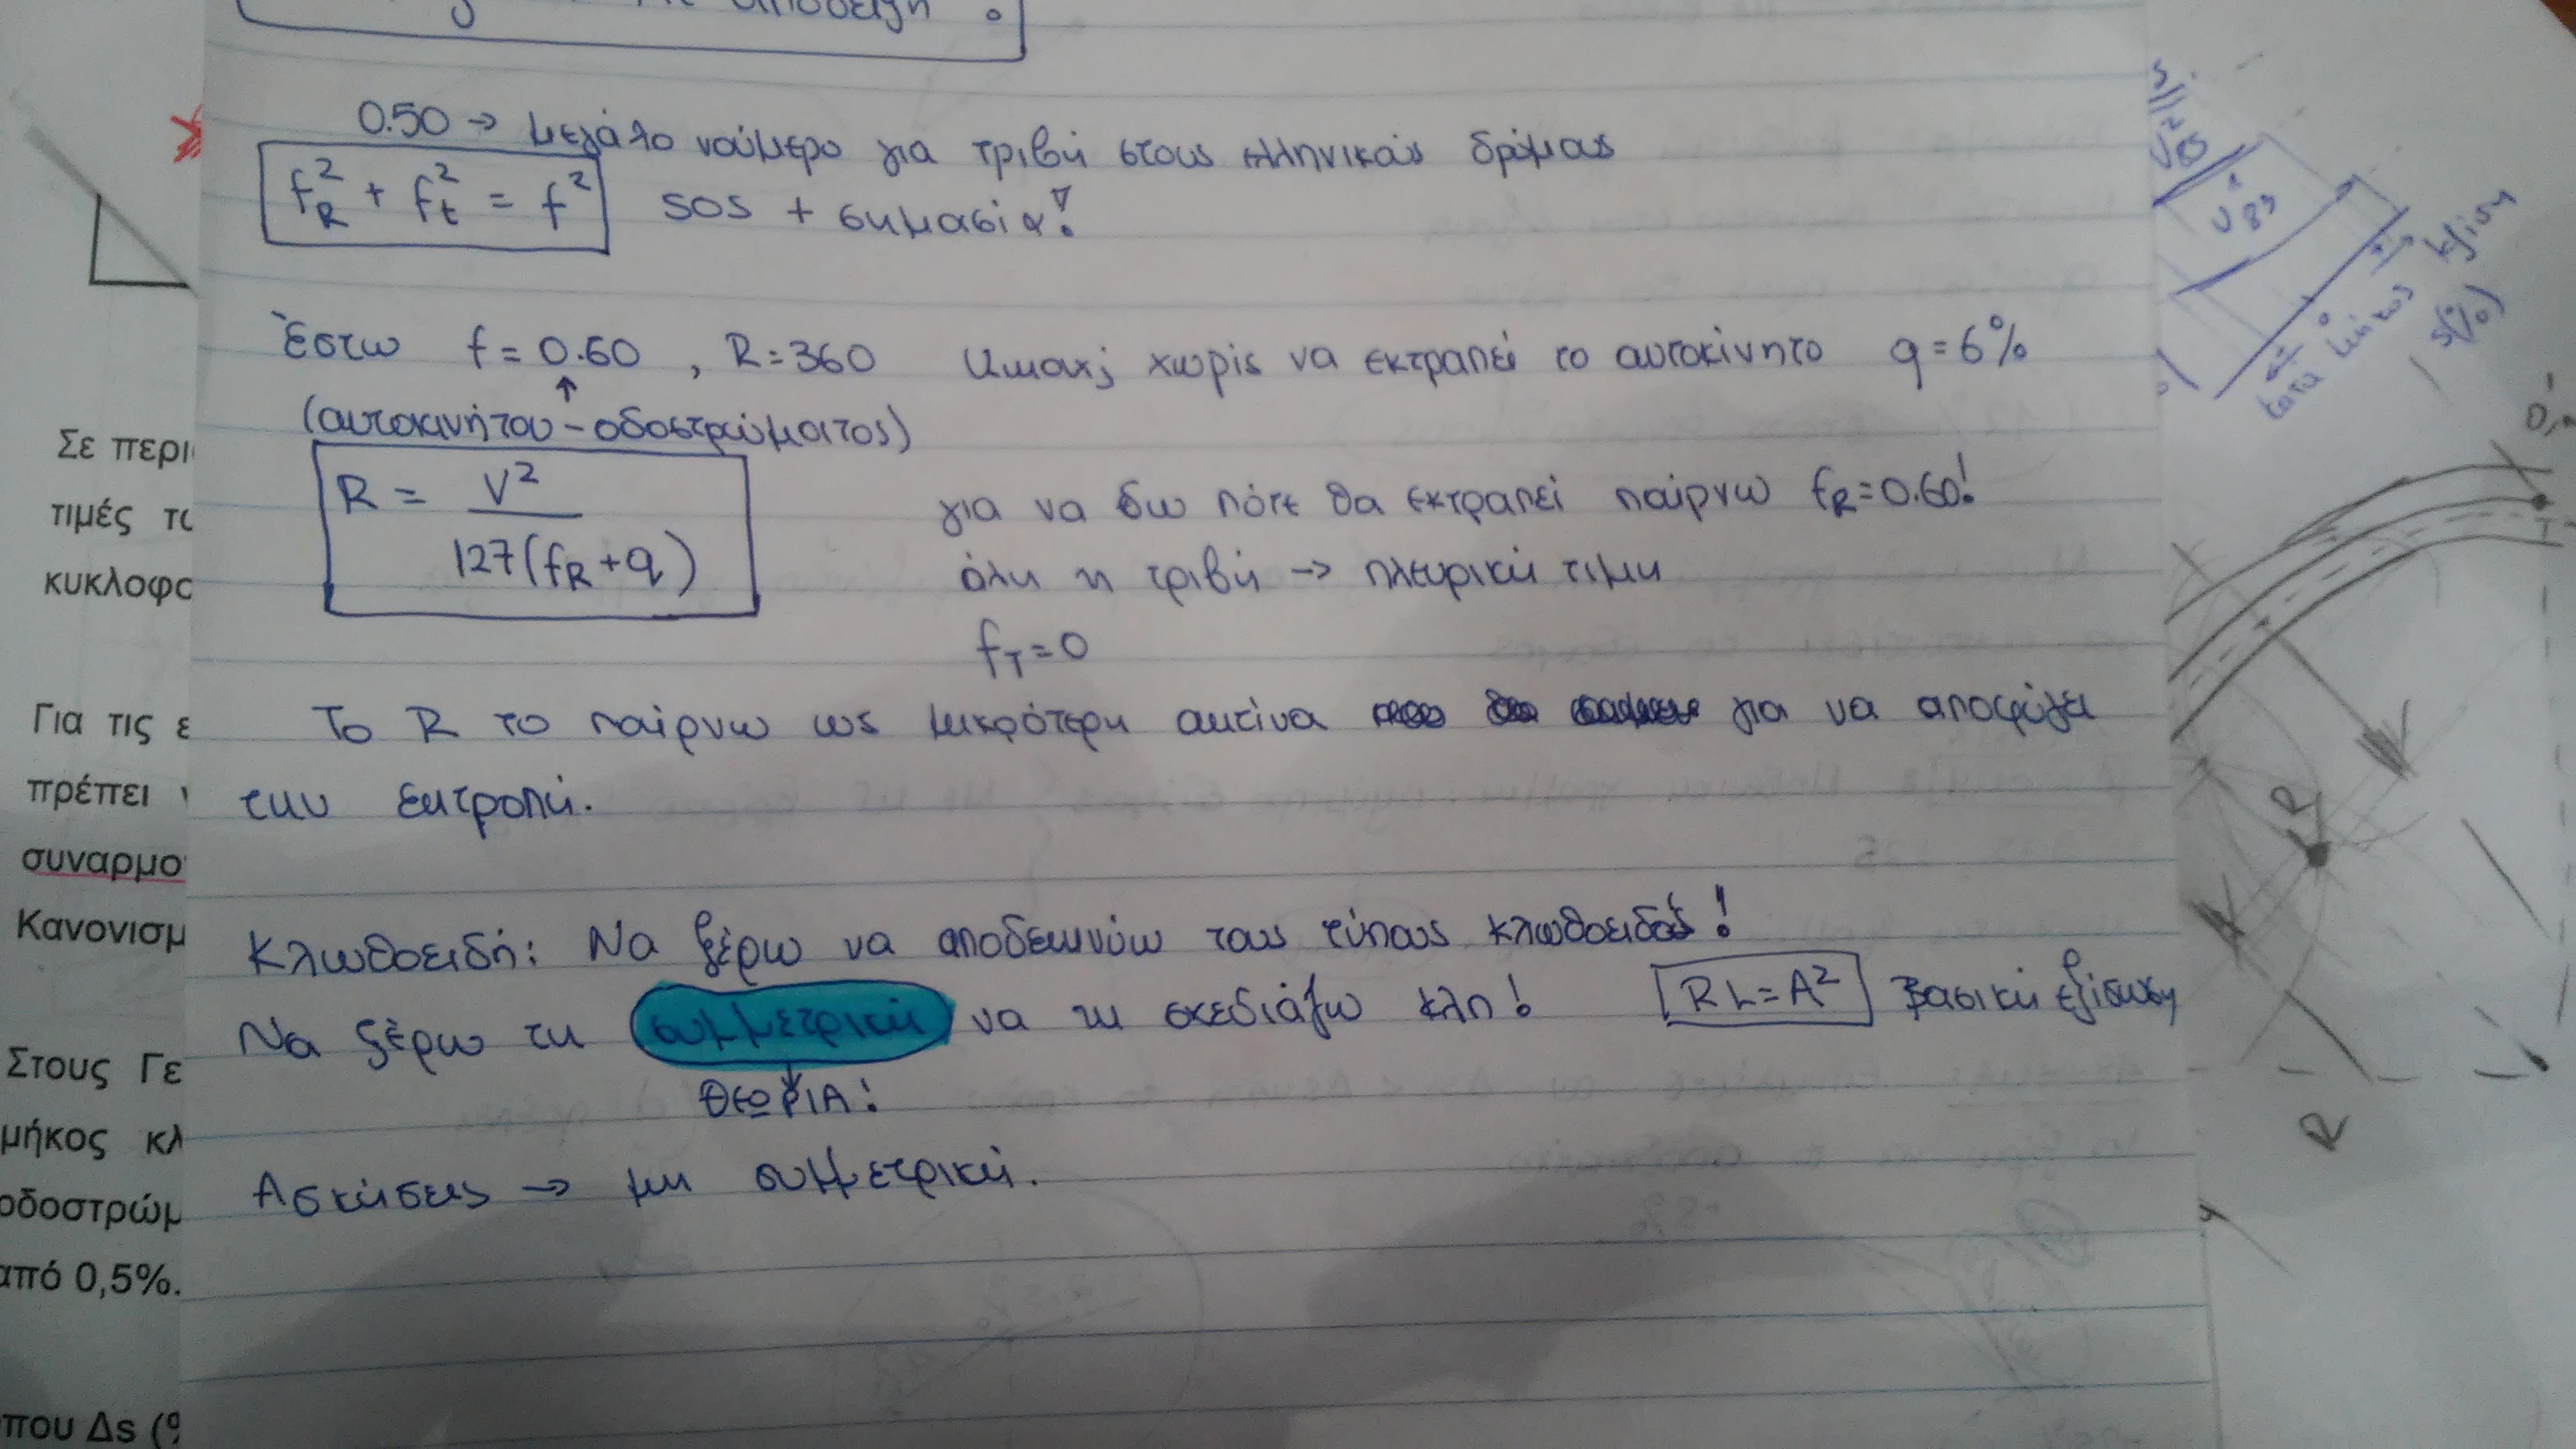 0.50 → μεγάλο νούμερο για τριβή στους ελληνικούς δρόμους
f_R² + f_t² = f² sos + σημασία!
Έστω f = 0.60 , R = 360 χωρίς να εκτραπεί το αυτοκίνητο q = 6%
↑
(αυτοκινήτου - οδοστρώματος)
R = V² / 127(f_R + q)
για να δω πότε θα εκτραπεί παίρνω f_R = 0.60!
όλη η τριβή → πλευρική τιμή
f_T = 0
Το R το παίρνω ως μικρότερη ακτίνα για να αποφύγει
την εκτροπή.
Κλωθοειδή: Να ξέρω να αποδεικνύω τους τύπους κλωθοειδούς!
Να ξέρω τη συμμετρική να τη σχεδιάζω κλπ! RL = A² Βασική εξίσωση
ΘΕΩΡΙΑ!
Ασκήσεις → μη συμμετρική.
Σε περι
τιμές το
κυκλοφο
Για τις ε
πρέπει
συναρμο
Κανονισμ
Στους Γε
μήκος κλ
οδοστρώμ
από 0,5%.
που Δs (
κατά μήκος κλίση
s(%)
V85
R
R